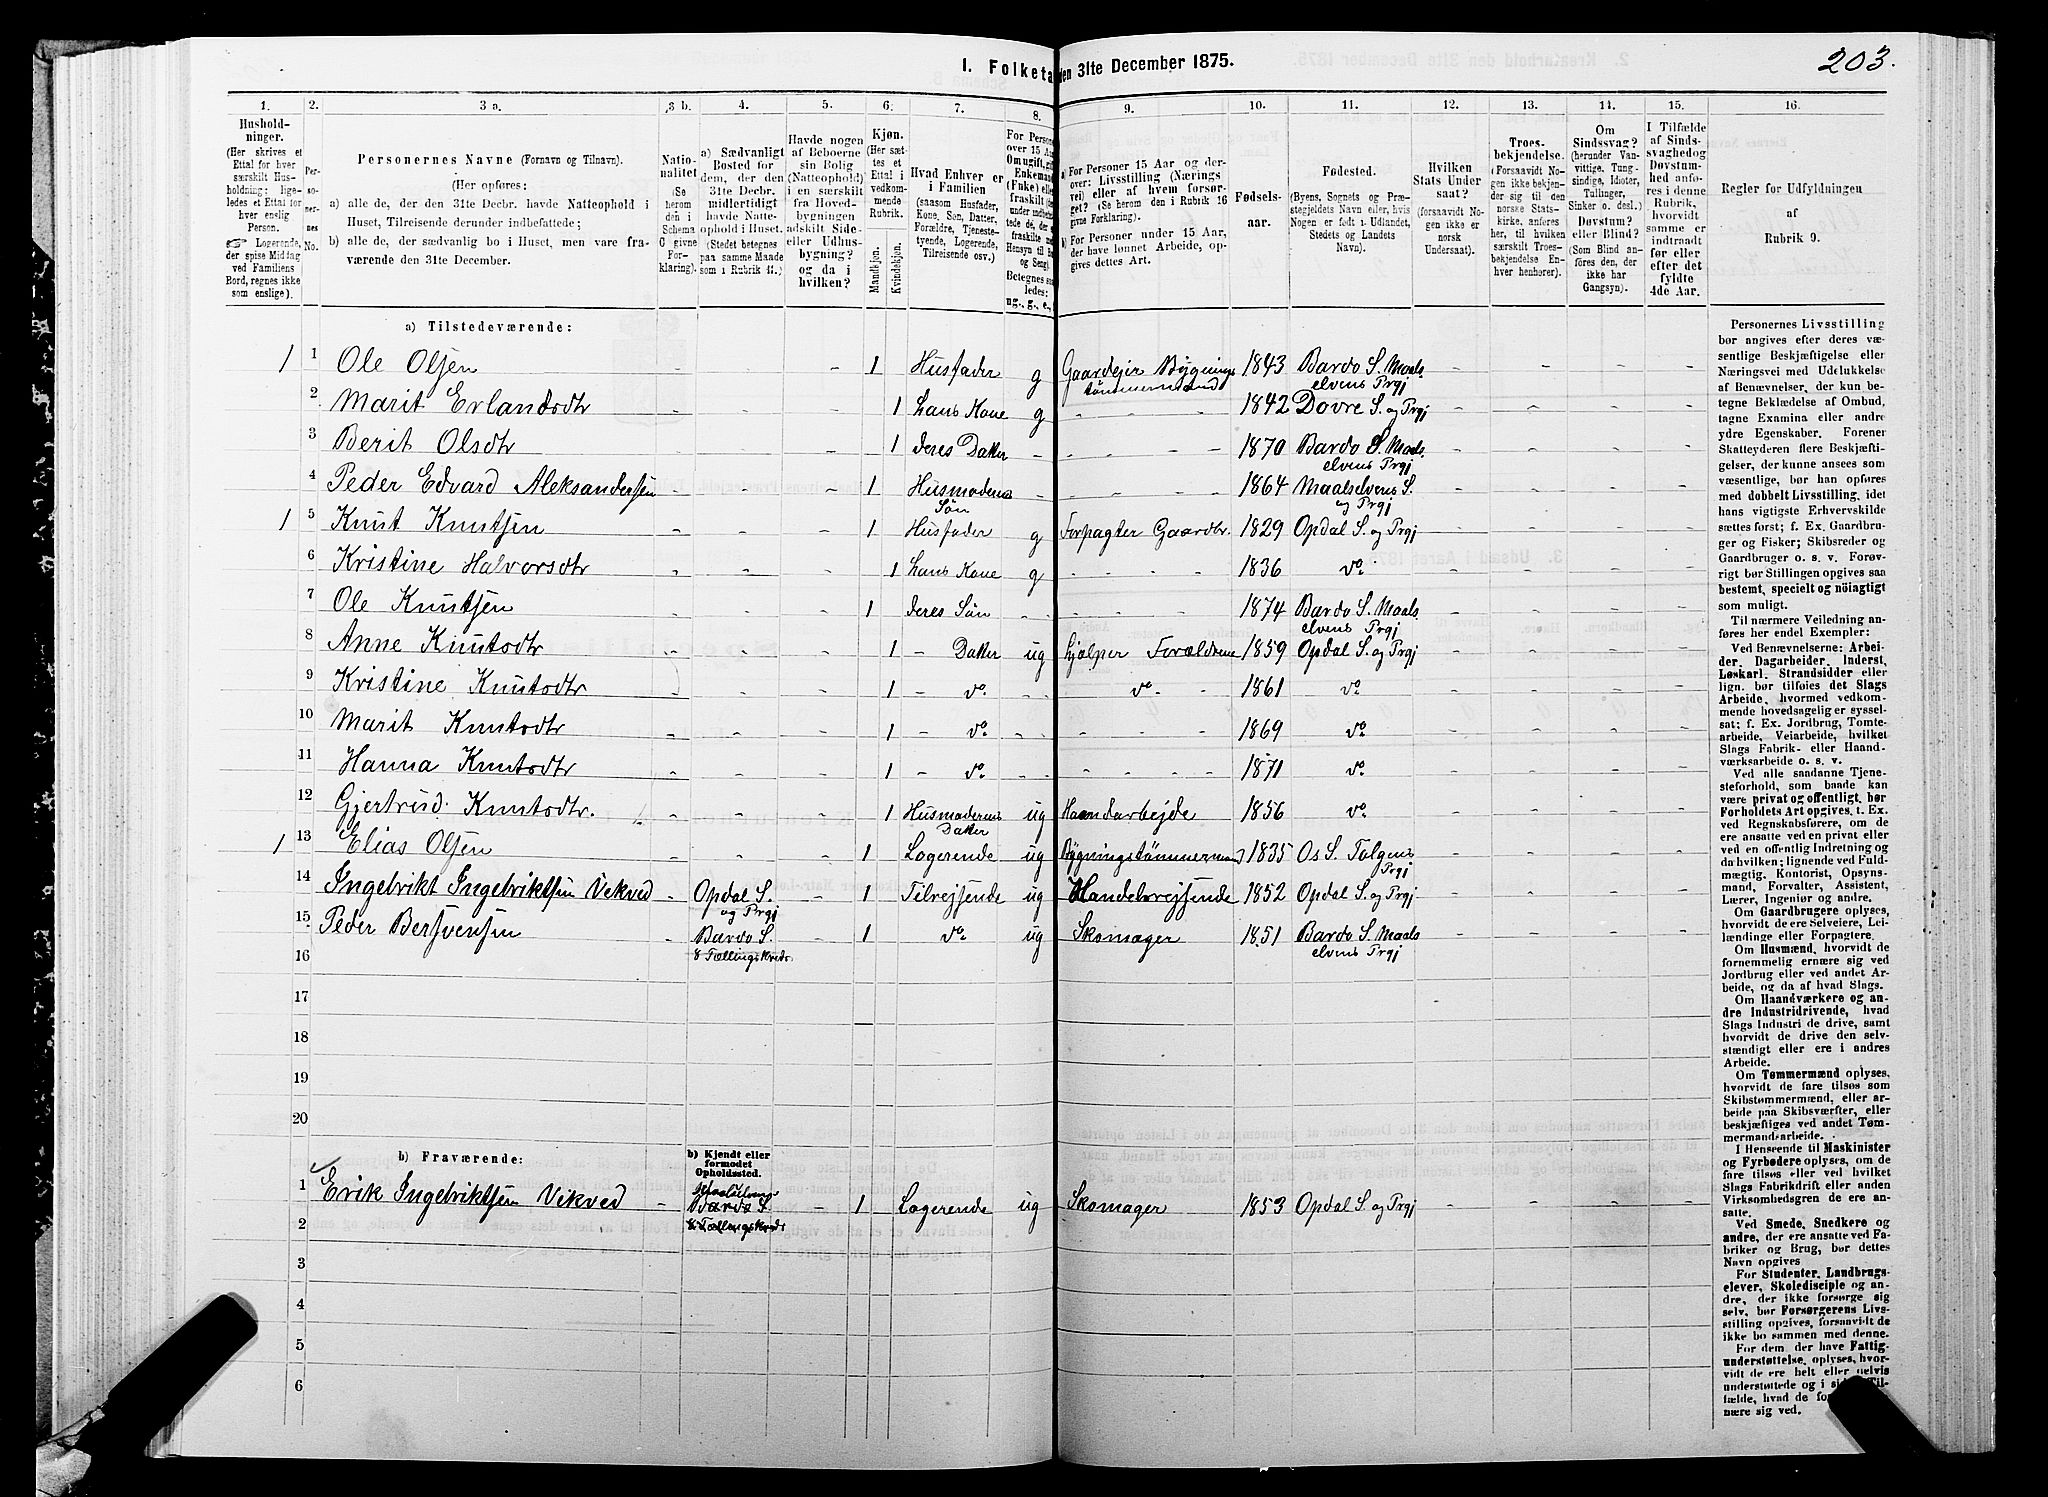 1. Folketa
den 31te December 1875.
203.
1. 2. 3 a. 3 b. 4. 5. 6. 7. 8. 9. 10. 11. 12. 13. 14. 15. 16.
Hushold-
ninger.
(Her skrives et
Ettal for hver
særskilt Hus-
holdning; lige-
ledes et Ettal for
hver enslig
Person.
☞ Logerende,
der spise Middag
ved Familiens
Bord, regnes ikke
som enslige).
Per-
so-
ner-
nes
No.
Personernes Navne (Fornavn og Tilnavn).
(Her opføres:
a) alle de, der den 31te Decbr. havde Natteophold i
Huset, Tilreisende derunder indbefattede;
b) alle de, der sædvanlig bo i Huset, men vare fra-
værende den 31te December).
Natio-
nalitet
(Se
herom
den i
Schema
G givne
For-
klaring).
a) Sædvanligt
Bosted for
dem, der den
31te Decbr.
midlertidigt
havde Natte-
ophold i Huset.
(Stedet betegnes
paa samme Maade
som i Rubrik 11.)
Havde nogen
af Beboerne
sin Bolig
(Natteophold)
i en særskilt
fra Hoved-
bygningen
adskilt Side-
eller Udhus-
bygning?
og da i
hvilken?
Kjøn.
(Her sæt-
tes et
Ettal i
vedkom-
mende
Rubrik.
Mandkjøn.
Kvindekjøn.
Hvad Enhver er
i Familien
(saasom Husfader,
Kone, Søn, Datter,
Forældre, Tjeneste-
tyende, Logerende,
Tilreisende osv.)
For Persone
over 15 Aa
Om ugift, gi
Enkemand
(Enke) elle
fraskilt
ug., g., e.,
a) For Personer 15 Aar og der-
over: Livsstilling (Nærings
vei) eller af hvem forsør-
get? (Se herom den i Rubrik 16
givne Førklaring).
b) For Personer under 15 Aar,
der have lønnet Arbeide, op-
gives dettes Art.
Fødsels-
aar.
Fødested.
(Byens, Sognets og Præ-
stegjeldets Navn eller, hvis
Nogen er født i Udlandet,
Stedets og Landets
Navn).
Hvilken
Stats Under
saat?
(forsaavidt No-
gen ikke er
norsk
Undersaat).
Troes-
bekjendelse.
(Forsaavidt No-
gen ikke bekjen-
der sig til den
norske Stats-
kirke, anføres
her, til hvilken
særskilt Troes-
bekjendelse En-
hver henhører).
Om
Sindssvag?
(herunder Van-
vittige, Tung-
sindige, Idioter,
Tullinger,
Sinker o. desl.)
Døvstum?
eller Blind?
(Som Blind an-
føres den, der
ikke har
Gangsyn).
I Tilfælde
af Sinds-
svaghed og
Døvstum-
hed anfø-
res i denne
Rubrik,
hvorvidt
samme er
indtraadt
før eller
efter det
fyldte
4de Aar.
Regler for Udfyldningen
af
Rubrik 9.
a) Tilstedeværende:
1 1 Ole Olsen - - - 1 Husfader g Gaardejer Bygnings 1843 Bardo S. Maals
tømmermand elvens Prgj
2 Marit Erlandsdtr - - - 1 hans Kone g 1842 Dovre S. og Prgj
3 Berit Olsdtr - - - 1 deres Datter 1870 Bardo S. Maals
elvens Prgj
4 Peder Edvard Aleksandersen - - - 1 Husmoderens 1864 Maalselvens S.
Søn og Prgj
1 5 Knut Knutsen - - - 1 Husfader g Forpagter Gaardbr. 1829 Opdal S. og Prgj
6 Kristine Halvorsdtr - - - 1 hans Kone g 1836 do
7 Ole Knutsen - - - 1 deres Søn 1874 Bardo S. Maals
elvens Prgj
8 Anne Knutsdtr - - - 1 - Datter ug hjælper Forældrene 1859 Opdal S. og Prgj
9 Kristine Knutsdtr - - - 1 - do do 1861 do
10 Marit Knutsdtr - - - 1 - do 1869 do
11 Hanna Knutsdtr - - - 1 - do 1871 do
12 Gjertrud Knutsdtr. - - - 1 Husmoderens ug Haandarbejde 1856 do
Datter
1 13 Elias Olsen - - - 1 Logerende ug Bygningstømmermand 1835 Os S. Tolgens
Prgj
14 Ingebrikt Ingebriktsen Vekved - Opdal S. - 1 Tilrejsende ug Handelsrejsende 1852 Opdal S. og Prgj
og Prgj
15 Peder Bersvensen - Bardo S. - 1 do ug Skomager 1851 Bardo S. Maals
8 Tællingskreds elvens Prgj
16
17
18
19
20
b) Fraværende:
b) Kjendt eller
formodet
Opholdssted.
1 Erik Ingebriktsen Vikved - Bardo S. - 1 Logerende ug Skomager 1853 Opdal S. og Prgj
8 Tællingskreds
2
3
4
5
6
Personernes Livsstilling
bør angives efter deres væ-
sentlige Beskjæftigelse eller
Næringsvei med Udelukkelse
af Benævnelser, der kun be-
tegne Beklædelse af Ombud,
tagne Examina eller andre
ydre Egenskaber. Forener
Skatteyderen flere Beskjæfti-
gelser, der kunne ansees som
væsentlige, bør han opføres
med dobbelt Livsstilling, idet
hans vigtigste Erhvervskilde
sættes først; f. Ex. Gaardbru-
ger og Fisker; Skibsreder og
Gaardbruger o. s. v. Forøv-
rigt bør Stillingen opgives saa
bestemt, specielt og nöiagtigt
som muligt.
Til nærmere Veiledning an-
føres her endel Exempler:
Ved Benævnelserne: Arbei-
der, Dagarbeider, Inderst,
Løskarl, Strandsidder eller
lign. bør tilføies det Slags
Arbeide, hvormed vedkom-
mende hovedsagelig er syssel-
sat; f. Ex. Jordbrug, Tomte-
arbeide, Veiarbeide, hvilket
Slags Fabrik- eller Haand-
værksarbeide o. s. v.
Ved alle saadanne Tjene-
steforhold, som baade kan
være privat og offentligt, bør
Forholdets Art opgives, t. Ex.
ved Regnskabsførere, om de
ere ansatte ved en privat eller
ved en offentlig Indretning og
da hvilken; lignende ved Fuld-
mægtig, Kontorist, Opsyns-
mand, Forvalter, Assistent,
Lærer, Ingeniør og andre.
Om Gaardbrugere oplyses,
hvorvidt de ere Selveiere, Lei-
lændinge eller Forpagtere.
Om Husmænd, hvorvidt de
fornemmelig ernære sig ved
Jordbrug eller ved andet Ar-
beide, og da af hvad Slags.
Om Haandværkere og an-
dre Industridrivende, hvad
Slags Industri de drive, samt
hvorvidt de drive den selv-
stændigt eller ere i andres
Arbeide.
Om Tømmermænd oplyses,
hvorvidt de fare tilsøs som
Skibstømmermænd, eller ar-
beide paa Skibsværfter, eller
beskjæftiges ved andet Tøm-
mermandsarbeide.
I Henseende til Maskinister
og Fyrbødere oplyses, om de
fare tilsøs eller ved hvilket
Slags Fabrikdrift eller anden
Virksomhedsgren de ere an-
satte.
Ved Smede, Snedkere og
andre, der ere ansatte ved Fa-
briker og Brug, bør dettes
Navn opgives
For Studenter, Landbrugs-
elever, Skoledisciple og an-
dre, der ikke forsørge sig
selv, bør Forsørgerens Livs-
stilling opgives, forsaavidt de
ikke bo sammen med denne.
For dem, der have Fattig-
understøttelse, oplyses, hvor-
vidt de ere helt eller delvis
understøttede og i
fælde, hvad de
nære sig ved.